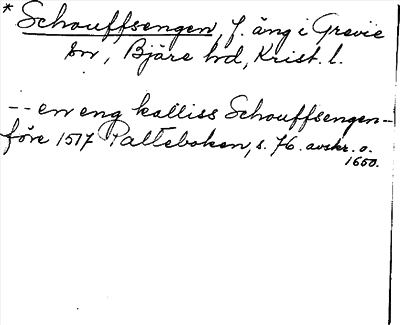 * Schouffsengen, f. äng i Grevie
sn, Bjäre hd, Krist. l.
-- en eng kalliss Schouffsengen --
före 1517 Palteboken, s. 76. avskr. o.
1650.